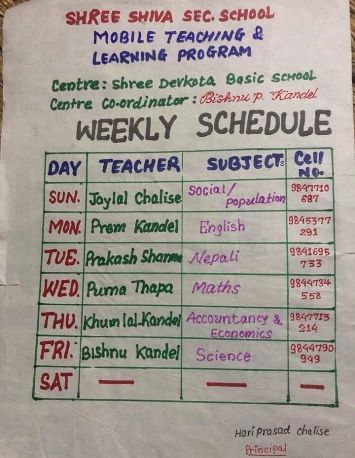 SHREE SHIVA SEC. SCHOOL
MOBILE TEACHING &
LEARNING PROGRAM
Centre : Shree Devkota Basic SCHOOL
Centre Co-ordinator : Bishnu P. Kandel
WEEKLY SCHEDULE
DAY TEACHER SUBJECTS Cell NO.
SUN. Joylal Chalise Social/ population 9847710 687
MON. Prem Kandel English 9845377 291
TUE. Prakash Sharma Nepali 9841695 733
WED. Purna Thapa Maths 9844734 558
THU. Khum lal Kandel Accountancy & Economics 9847713 214
FRI. Bishnu Kandel Science 9844790 949
SAT — — —
Hari Prasad Chalise
Principal